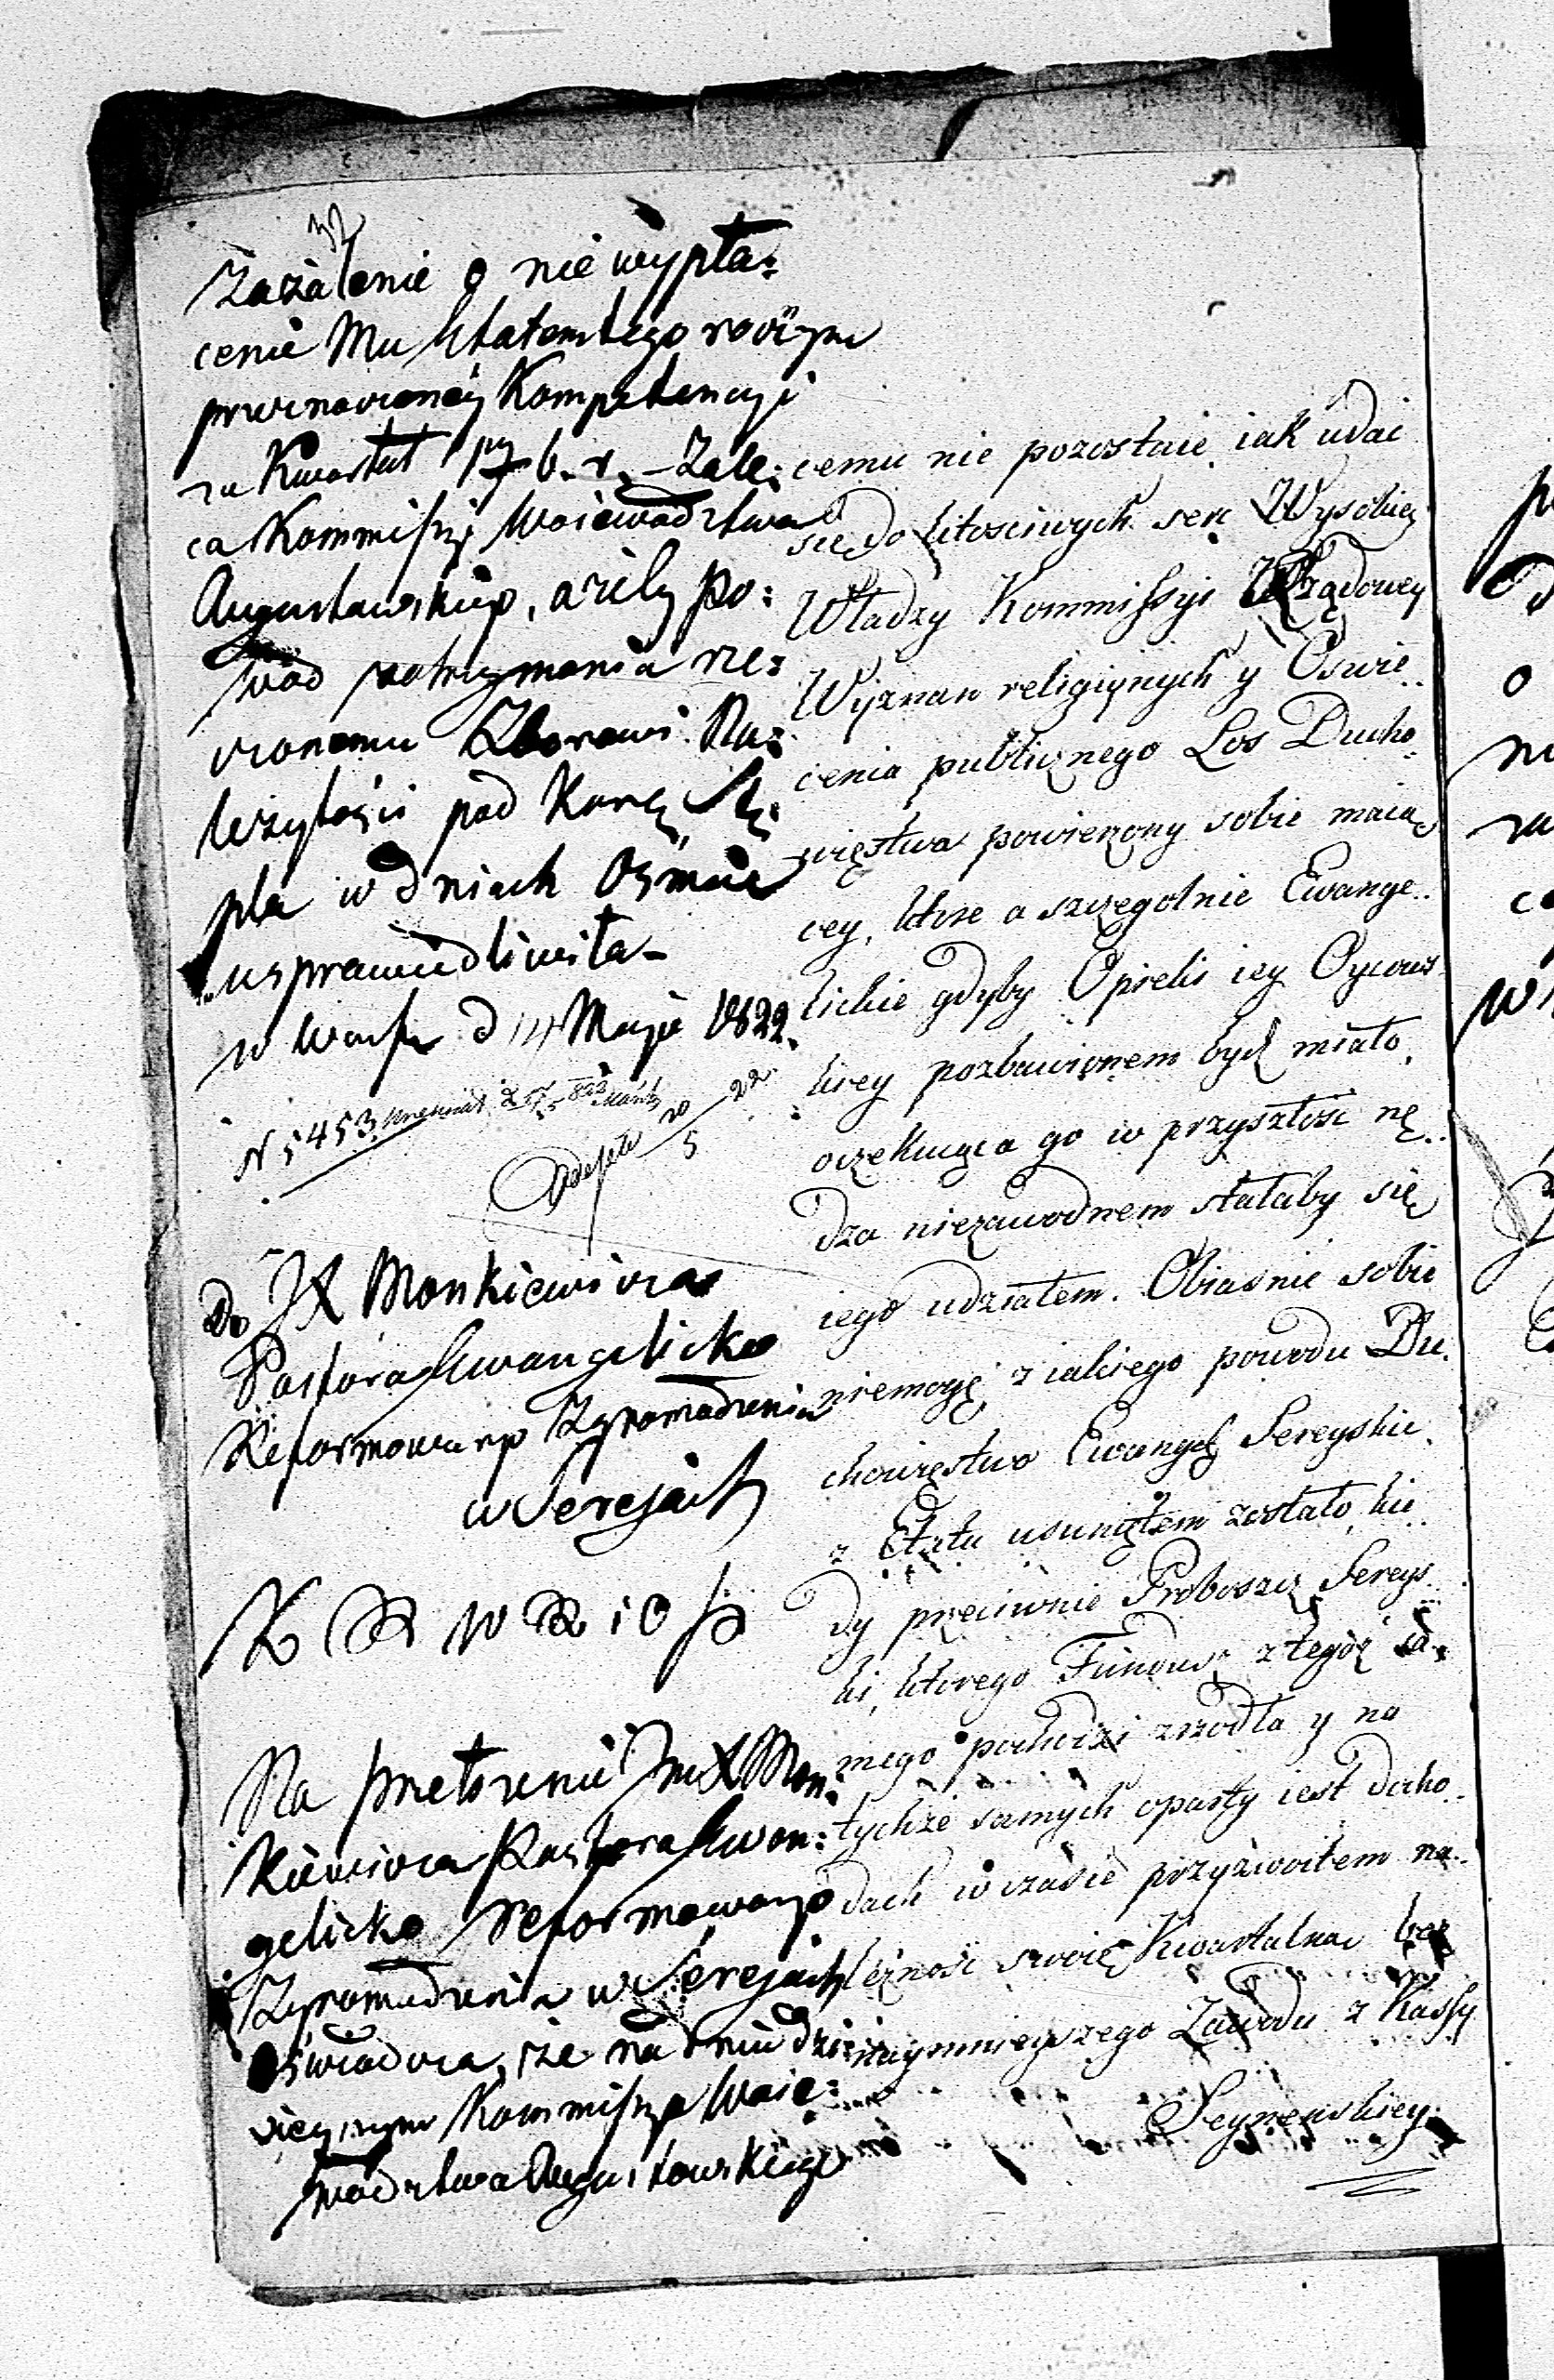 32
Zażalenie o nie wypła:
cenie Mu Etatem tegorocznym
przeznaczoney Kompetencyi
za Kwartał 1szy b. r. – Zale:
ca Kommissyi Woiewodztwa
Augustowskiego, ażeby po:
wod zatrzymania rze:
czonemu Zborowi Na:
leżytości pod Karą Stę:
pla w dniach Osmiu
usprawiedliwiła –
w Warsz d 14 Maja 1822.
N 5453
20/5 22
Do JX Monkiewicza
Pastora Ewangelicko
Reformowanego Zgromadzenia
w Serejach
Na przełożenie JmX Mon:
kiewicza Pastora Ewan:
gelicko Reformowanego
Zgromadzenia w Serejach
Oświadcza, że na dniu dzi:
sieyszym Kommissya Woie:
wodztwa Augustowskiego
cemu nie pozostaie, iak udać
się do litościwych serc Wysokiey
Władzy Kommissyi Rządowey
Wyznan religiynych y Oswie..
cenia publicznego Los Ducho..
więstwa powierzony sobie maią
cey, ktore a szczegolnie Ewange..
lickie gdyby Opieki iey Oycows
kiey pozbawionem bydź miało,
oczekuiąca go w przyszłości nę..
dza niezawodnem stałaby się
iego udziałem. Obiaśnić sobie
niemogę z iakiego powodu Du.
chowięstwo Ewangel Sereyskie
z Etatu usuniętem zostało, kie..
dy przeciwnie Proboszcz Sereys..
ki, ktorego Fundusz z tegoż sa..
mego pochodzi zrzodła y na
tychże samych oparty iest docho..
dach w czasie przyzwoitem na..
leżność swoię Kwartalną bez
naymnieyszego Zawodu z Kassy
Seyneńskiey